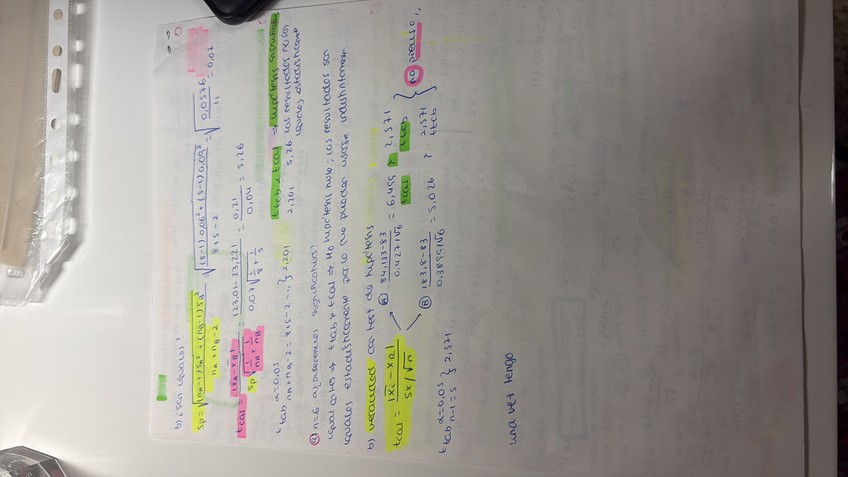 b) ¿son iguales?
Sp = √((nA-1)SA² + (nB-1)SB² / nA + nB - 2) = √((8-1)0,06² + (5-1)0,09² / 8+5-2) = √(0,0576 / 11) = 0,07
tcal = |x̄A - x̄B| / Sp √(1/nA + 1/nB) = |23,01 - 23,22| / 0,07 √(1/8 + 1/5) = 0,21 / 0,04 = 5,26
t tab α=0,05 nA+nB-2 = 8+5-2 = 11 } 2,201
ttab < tcal → hipótesis
2,201 5,26 los resultados no son iguales
n=6 ¿diferencias significativas?
igual ttab > tcal → H0 hipótesis nula; los resultados son
iguales estadísticamente por lo que pueden usarse indistintamente.
b) veracidad con test de hipótesis
tcal = |x̄i - x̄R| / Sx/√n
(A) 84,123-83 / 0,427/√6 = 6,455 > 2,571
tcal ttab
(B) |83,8-83| / 0,3899/√6 = 5,026 > 2,571
ttab
} no preciso
t tab α=0,05 n-1=5 } 2,571
una vez tengo